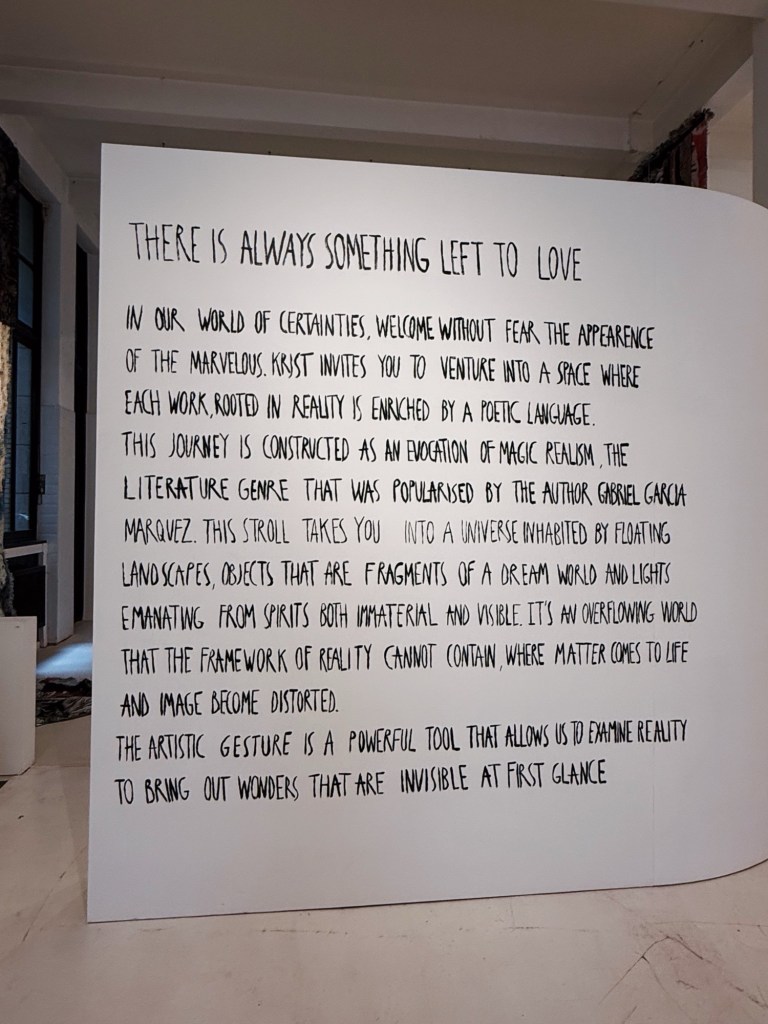 THERE IS ALWAYS SOMETHING LEFT TO LOVE
IN OUR WORLD OF CERTAINTIES, WELCOME WITHOUT FEAR THE APPEARENCE
OF THE MARVELOUS. KRJST INVITES YOU TO VENTURE INTO A SPACE WHERE
EACH WORK, ROOTED IN REALITY IS ENRICHED BY A POETIC LANGUAGE.
THIS JOURNEY IS CONSTRUCTED AS AN EVOCATION OF MAGIC REALISM, THE
LITERATURE GENRE THAT WAS POPULARISED BY THE AUTHOR GABRIEL GARCIA
MARQUEZ. THIS STROLL TAKES YOU INTO A UNIVERSE INHABITED BY FLOATING
LANDSCAPES, OBJECTS THAT ARE FRAGMENTS OF A DREAM WORLD AND LIGHTS
EMANATING FROM SPIRITS BOTH IMMATERIAL AND VISIBLE. IT'S AN OVERFLOWING WORLD
THAT THE FRAMEWORK OF REALITY CANNOT CONTAIN, WHERE MATTER COMES TO LIFE
AND IMAGE BECOME DISTORTED.
THE ARTISTIC GESTURE IS A POWERFUL TOOL THAT ALLOWS US TO EXAMINE REALITY
TO BRING OUT WONDERS THAT ARE INVISIBLE AT FIRST GLANCE